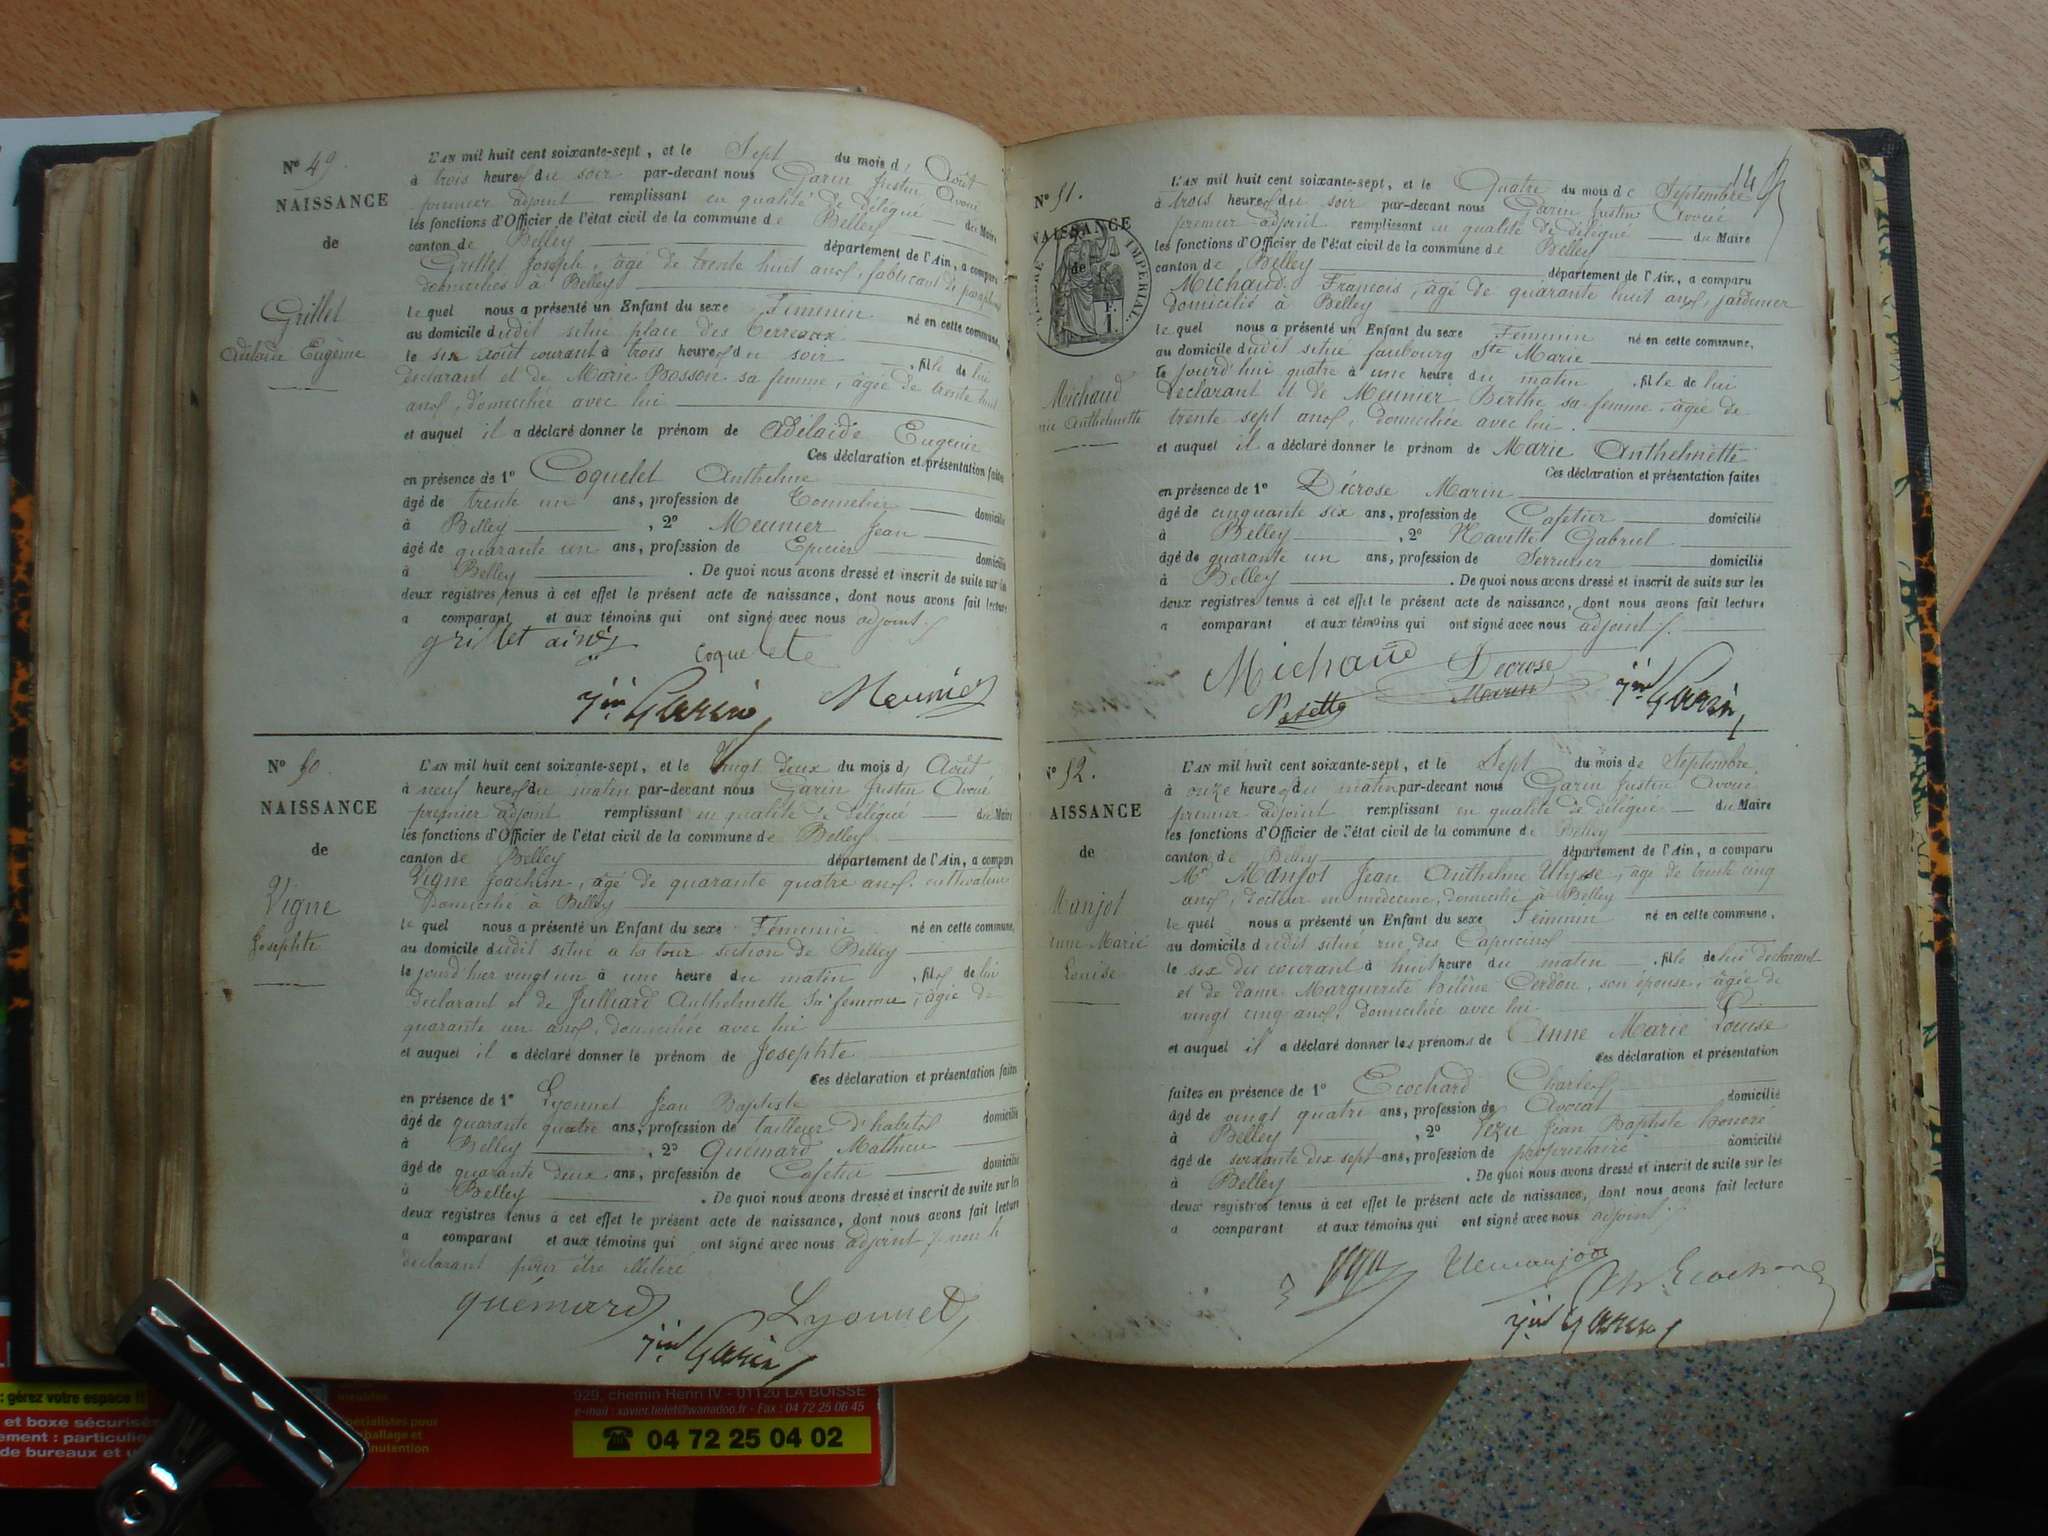 Nº 49.
NAISSANCE
de
Grillet
Adelaïde Eugénie
L'AN mil huit cent soixante-sept, et le Sept du mois d' Août
à trois heures du soir par-devant nous Garin Justin Avoué
premier adjoint remplissant en qualité de délégué du Maire
les fonctions d'Officier de l'état civil de la commune de Belley
canton de Belley département de l'Ain, a comparu
Grillet Joseph, âgé de trente huit ans, fabricant de
domicilié à Belley
le quel nous a présenté un Enfant du sexe Féminin né en cette commune,
au domicile dudit situé place des Terreaux
le six août courant à trois heures du soir, fille de lui
déclarant et de Marie Bosson sa femme, âgée de trente huit
ans, domiciliée avec lui
et auquel il a déclaré donner le prénom de Adélaïde Eugénie
Ces déclaration et présentation faites
en présence de 1º Coquelet Anthelme
âgé de trente un ans, profession de Tonnelier domicilié
à Belley, 2º Meunier Jean
âgé de quarante un ans, profession de Epicier domicilié
à Belley. De quoi nous avons dressé et inscrit de suite sur les
deux registres tenus à cet effet le présent acte de naissance, dont nous avons fait lecture
a comparant et aux témoins qui ont signé avec nous adjoint
grillet ainé
coquelete
Jin Garin
Meunier
Nº 50.
NAISSANCE
de
Vigne
Josephte
L'AN mil huit cent soixante-sept, et le Vingt deux du mois d' Août
à neuf heures du matin par-devant nous Garin Justin Avoué
premier adjoint remplissant en qualité de délégué du Maire
les fonctions d'Officier de l'état civil de la commune de Belley
canton de Belley département de l'Ain, a comparu
Vigne Joachim, âgé de quarante quatre ans, cultivateur
Domicilié à Belley
le quel nous a présenté un Enfant du sexe Féminin né en cette commune,
au domicile dudit situé a la tour section de Belley
le jourd'hier vingt un à une heure du matin, fille de lui
déclarant et de Julliard Anthelmette sa femme, âgée de
quarante un ans, domiciliée avec lui
et auquel il a déclaré donner le prénom de Josephte
Ces déclaration et présentation faites
en présence de 1º Lyonnet Jean Baptiste
âgé de quarante quatre ans, profession de tailleur d'habits domicilié
à Belley, 2º Quémard Mathieu
âgé de quarante deux ans, profession de Cafetier domicilié
à Belley. De quoi nous avons dressé et inscrit de suite sur les
deux registres tenus à cet effet le présent acte de naissance, dont nous avons fait lecture
a comparant et aux témoins qui ont signé avec nous adjoint, non le
déclarant pour être illétéré
quémard
Lyonnet
Jin Garin
Nº 51.
NAISSANCE
de
TIMBRE IMPERIAL
1 F.
Michaud
Anthelmette
L'AN mil huit cent soixante-sept, et le Quatre du mois de Septembre
à trois heures du soir par-devant nous Garin Justin Avoué
premier adjoint remplissant en qualité de délégué du Maire
les fonctions d'Officier de l'état civil de la commune de Belley
canton de Belley département de l'Ain, a comparu
Michaud François, âgé de quarante huit ans, jardinier
domicilié à Belley
le quel nous a présenté un Enfant du sexe Féminin né en cette commune,
au domicile dudit situé faubourg Ste Marie
le jourd'hui quatre à une heure du matin, fille de lui
Déclarant et de Meunier Berthe sa femme, âgée de
trente sept ans, domiciliée avec lui.
et auquel il a déclaré donner le prénom de Marie Anthelmette
Ces déclaration et présentation faites
en présence de 1º Décrose Marin
âgé de cinquante six ans, profession de Cafetier domicilié
à Belley, 2º Navettet Gabriel
âgé de quarante un ans, profession de Serrurier domicilié
à Belley. De quoi nous avons dressé et inscrit de suite sur les
deux registres tenus à cet effet le présent acte de naissance, dont nous avons fait lecture
a comparant et aux témoins qui ont signé avec nous adjoint.
Michaud
Decrose
Marin
Jin Garin
Nº 52.
AISSANCE
de
Manjot
Anne Marie
Louise
L'AN mil huit cent soixante-sept, et le Sept du mois de Septembre
à onze heures du matin par-devant nous Garin Justin Avoué
premier adjoint remplissant en qualité de délégué du Maire
les fonctions d'Officier de l'état civil de la commune de Belley
canton de Belley département de l'Ain, a comparu
Mr Manjot Jean Anthelme Ulysse, âgé de trente cinq
ans, docteur en médecine, domicilié à Belley
le quel nous a présenté un Enfant du sexe Féminin né en cette commune,
au domicile dudit situé rue des Capucins
le six du courant à huit heure du matin, fille de lui déclarant
et de dame Marguerite hélène Cerdon, son épouse, âgée de
vingt cinq ans, domiciliée avec lui
et auquel il a déclaré donner les prénoms de Anne Marie Louise
Ces déclaration et présentation
faites en présence de 1º Ecochard Charles
âgé de vingt quatre ans, profession de Avocat domicilié
à Belley, 2º Vezu Jean Baptiste honoré
âgé de soixante dix sept ans, profession de propriétaire domicilié
à Belley. De quoi nous avons dressé et inscrit de suite sur les
deux registres tenus à cet effet le présent acte de naissance, dont nous avons fait lecture
a comparant et aux témoins qui ont signé avec nous adjoint
Ch Ecochard
Jin Garin
: gérez votre espace !!
et boxe sécurisés
ement : particulie
de bureaux et
meubles
spécialistes pour
emballage et
manutention
929, chemin Henri IV - 01120 LA BOISSE
e-mail : xavier.holet@wanadoo.fr - Fax : 04 72 25 06 45
☎ 04 72 25 04 02